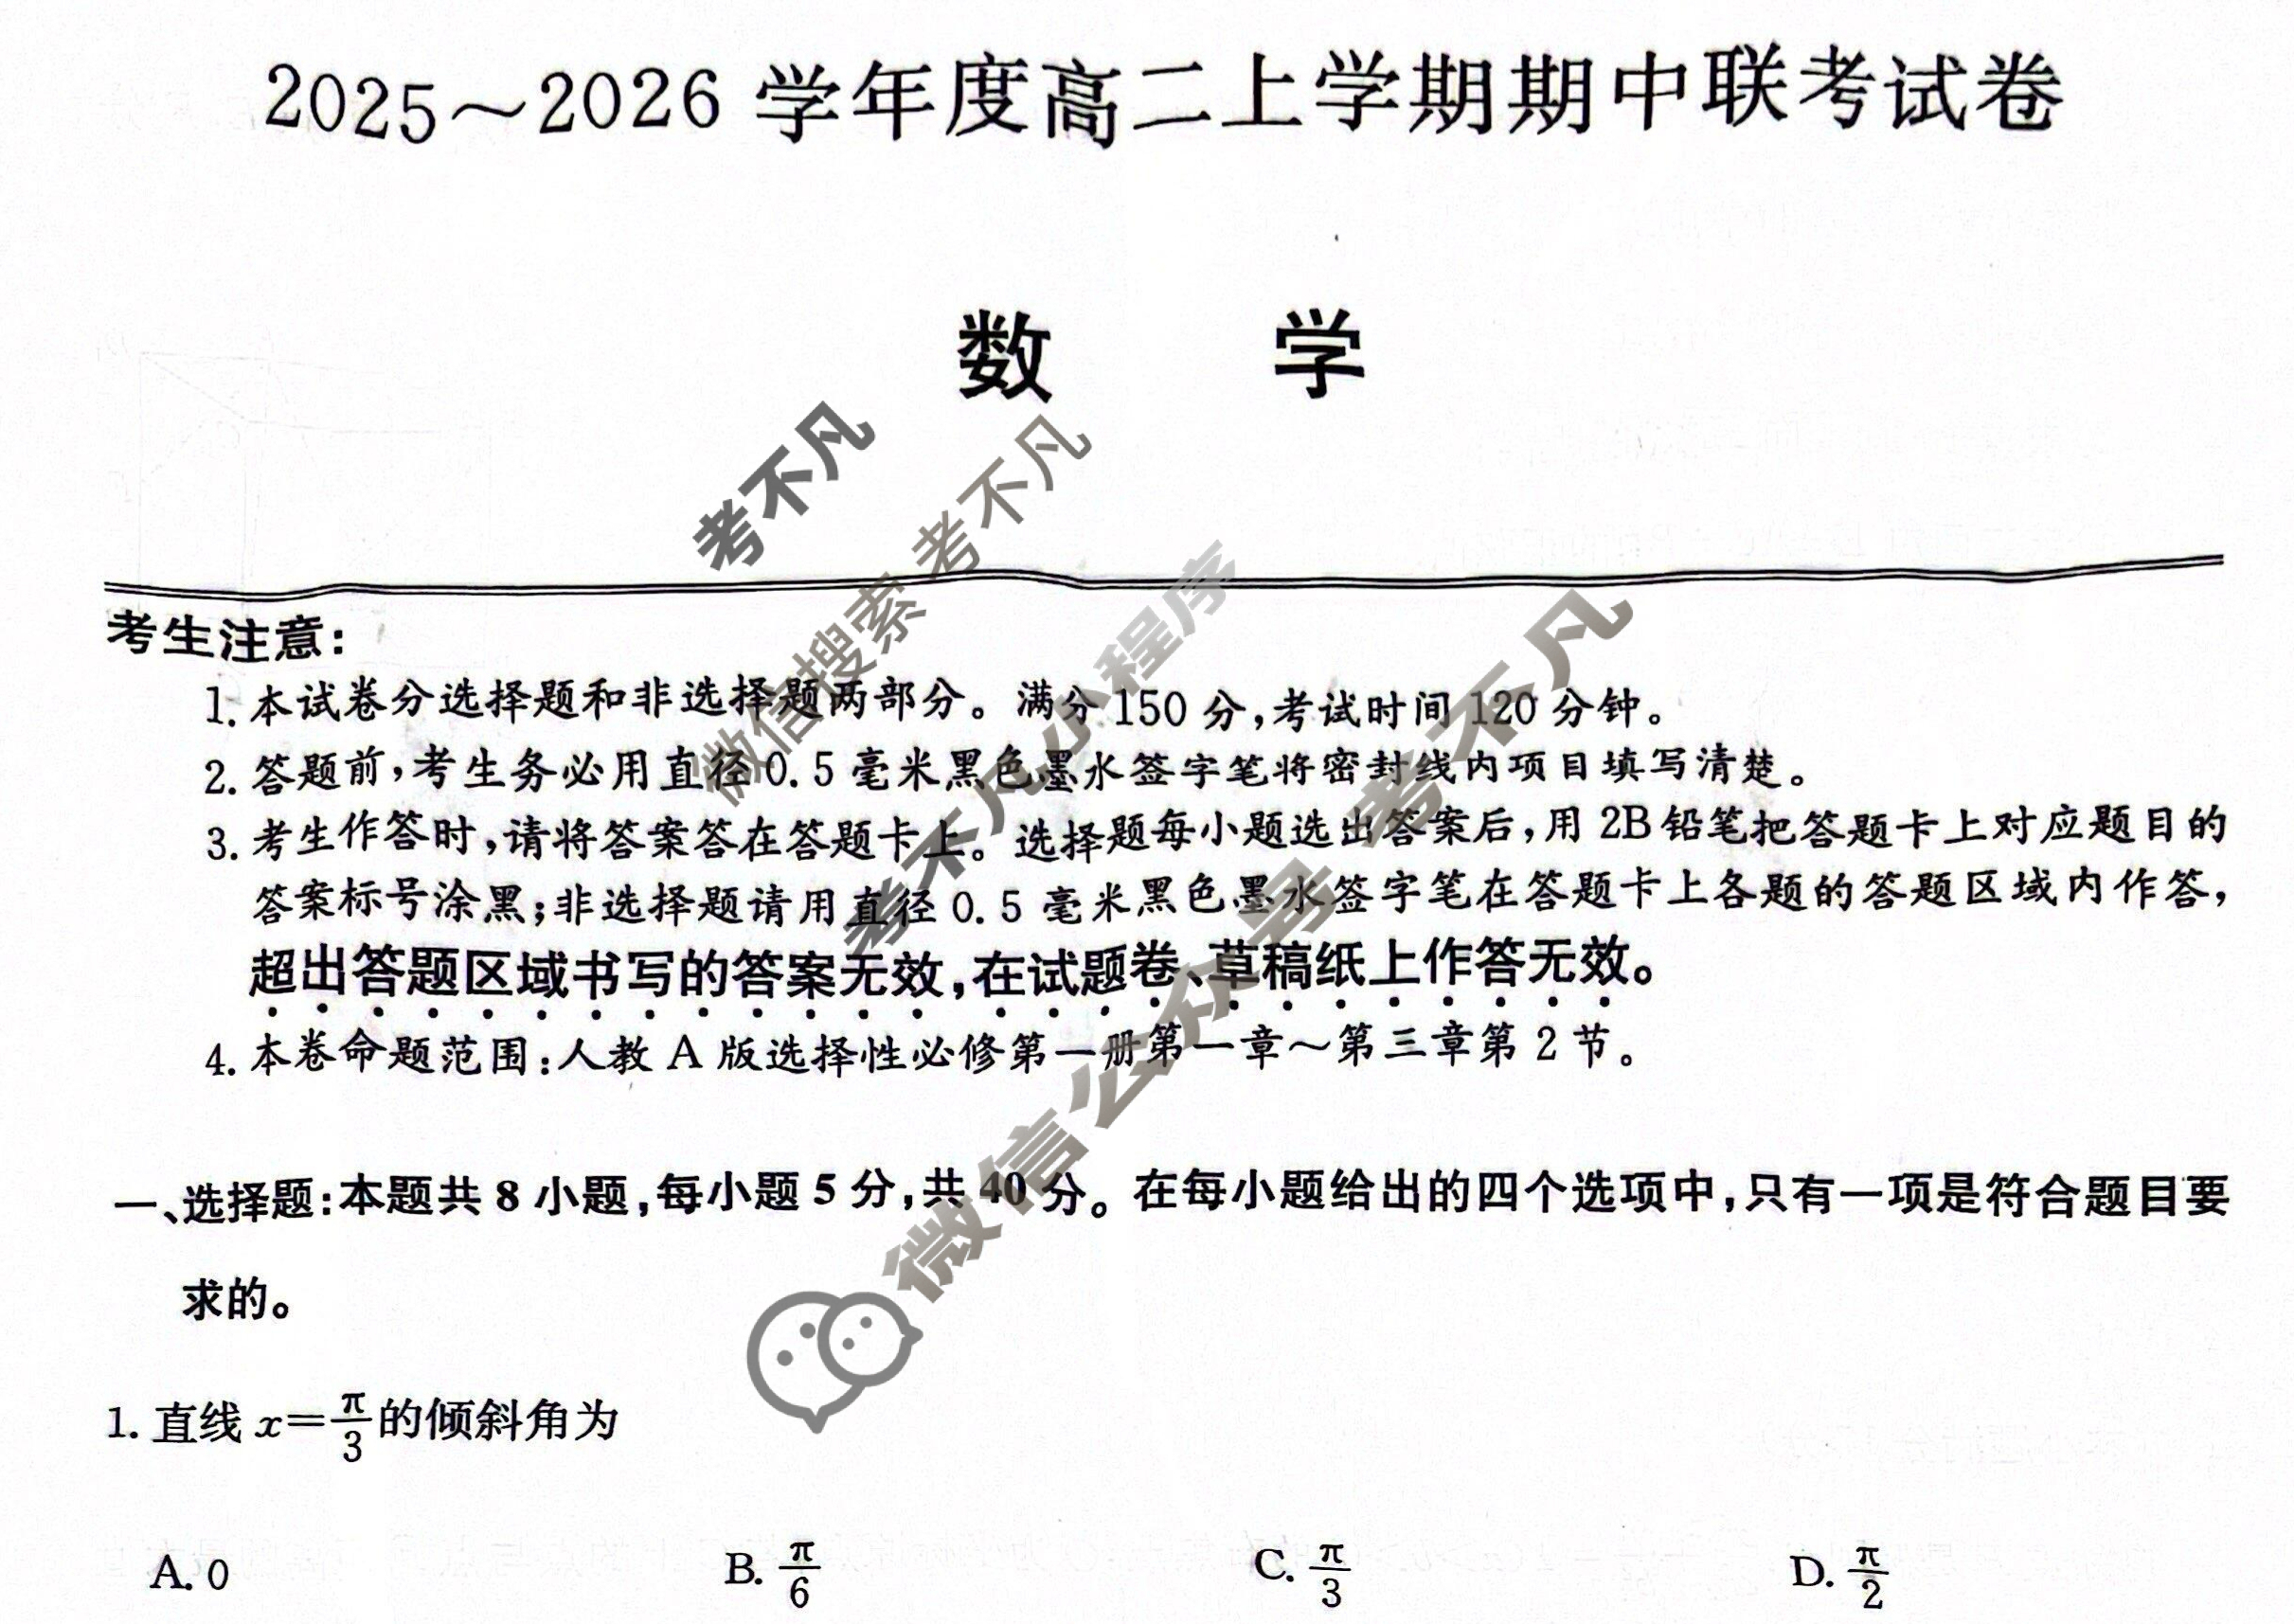 2025～2026 学年度高二上学期期中联考试卷
数 学
考不凡
微信搜索 考不凡
考不凡小程序
微信公众号 考不凡
考生注意：
1. 本试卷分选择题和非选择题两部分。满分 150 分，考试时间 120 分钟。
2. 答题前，考生务必用直径 0.5 毫米黑色墨水签字笔将密封线内项目填写清楚。
3. 考生作答时，请将答案答在答题卡上。选择题每小题选出答案后，用 2B 铅笔把答题卡上对应题目的
答案标号涂黑；非选择题请用直径 0.5 毫米黑色墨水签字笔在答题卡上各题的答题区域内作答，
超出答题区域书写的答案无效，在试题卷、草稿纸上作答无效。
4. 本卷命题范围：人教 A 版选择性必修第一册第一章～第三章第 2 节。
一、选择题：本题共 8 小题，每小题 5 分，共 40 分。在每小题给出的四个选项中，只有一项是符合题目要
求的。
1. 直线 x=π/3 的倾斜角为
A. 0 B. π/6 C. π/3 D. π/2